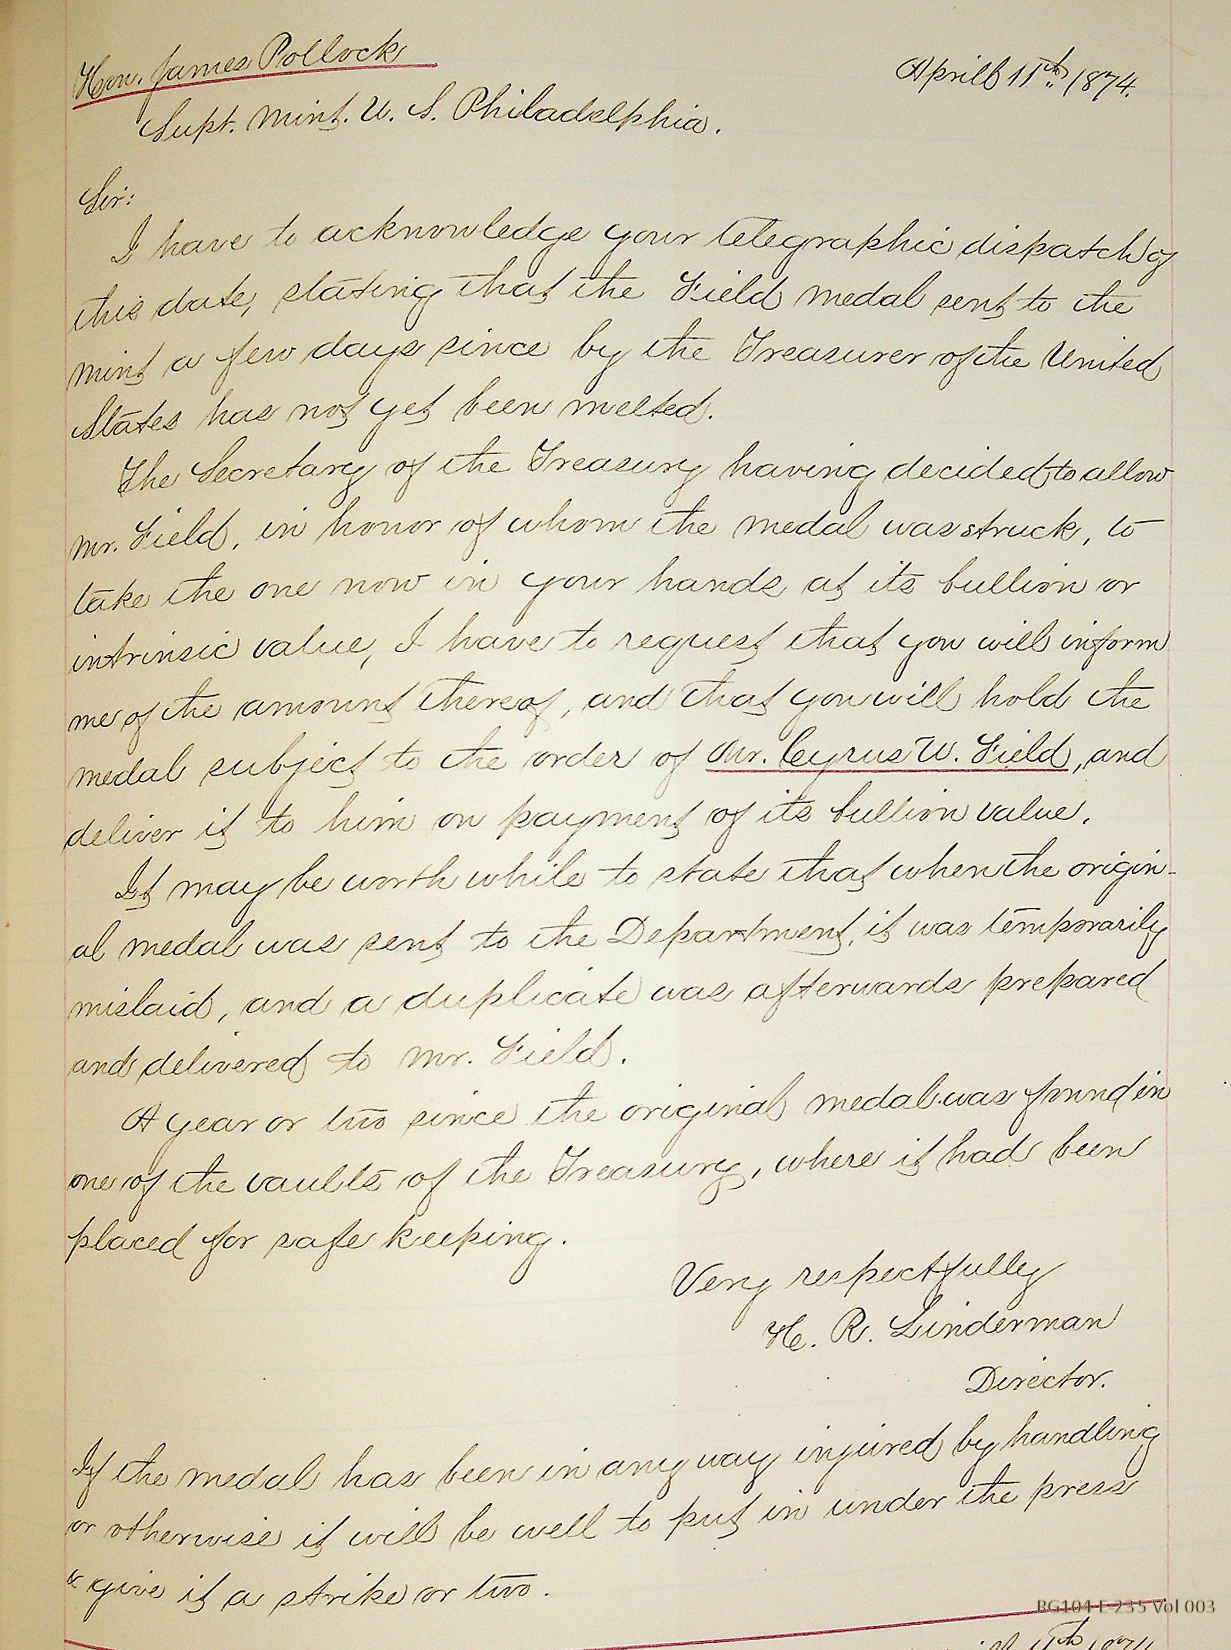 Hon. James Pollock
April 11th, 1874.
Supt. Mint. U. S. Philadelphia.
Sir:
I have to acknowledge your telegraphic dispatch of
this date, stating that the Field medal sent to the
mint a few days since by the Treasurer of the United
States has not yet been melted.
The Secretary of the Treasury having decided to allow
Mr. Field, in honor of whom the medal was struck, to
take the one now in your hands at its bullion or
intrinsic value, I have to request that you will inform
me of the amount thereof, and that you will hold the
medal subject to the order of Mr. Cyrus W. Field, and
deliver it to him on payment of its bullion value.
It may be worth while to state that when the origin-
al medal was sent to the Department, it was temporarily
mislaid, and a duplicate was afterwards prepared
and delivered to Mr. Field.
A year or two since the original medal was found in
one of the vaults of the Treasury, where it had been
placed for safe keeping.
Very respectfully
H. R. Linderman
Director.
If the medal has been in any way injured by handling
or otherwise it will be well to put in under the press
& give it a strike or two.
RG104 E-235 Vol 003